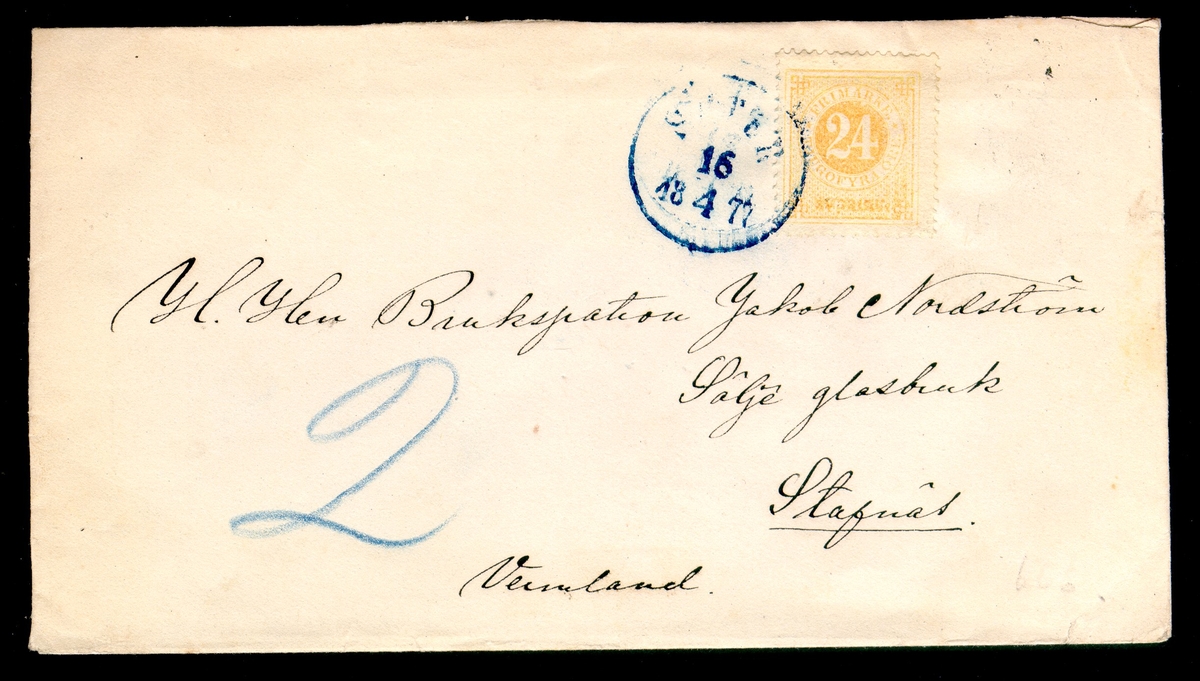 SÄTER
16
18 4 77
FRIMÄRKE
24
TJUGOFYRA ÖRE
SVERIGE
H. Herr Brukspatron Jakob Nordström
Sölje glasbruk
Stafnäs.
2
Vermland.